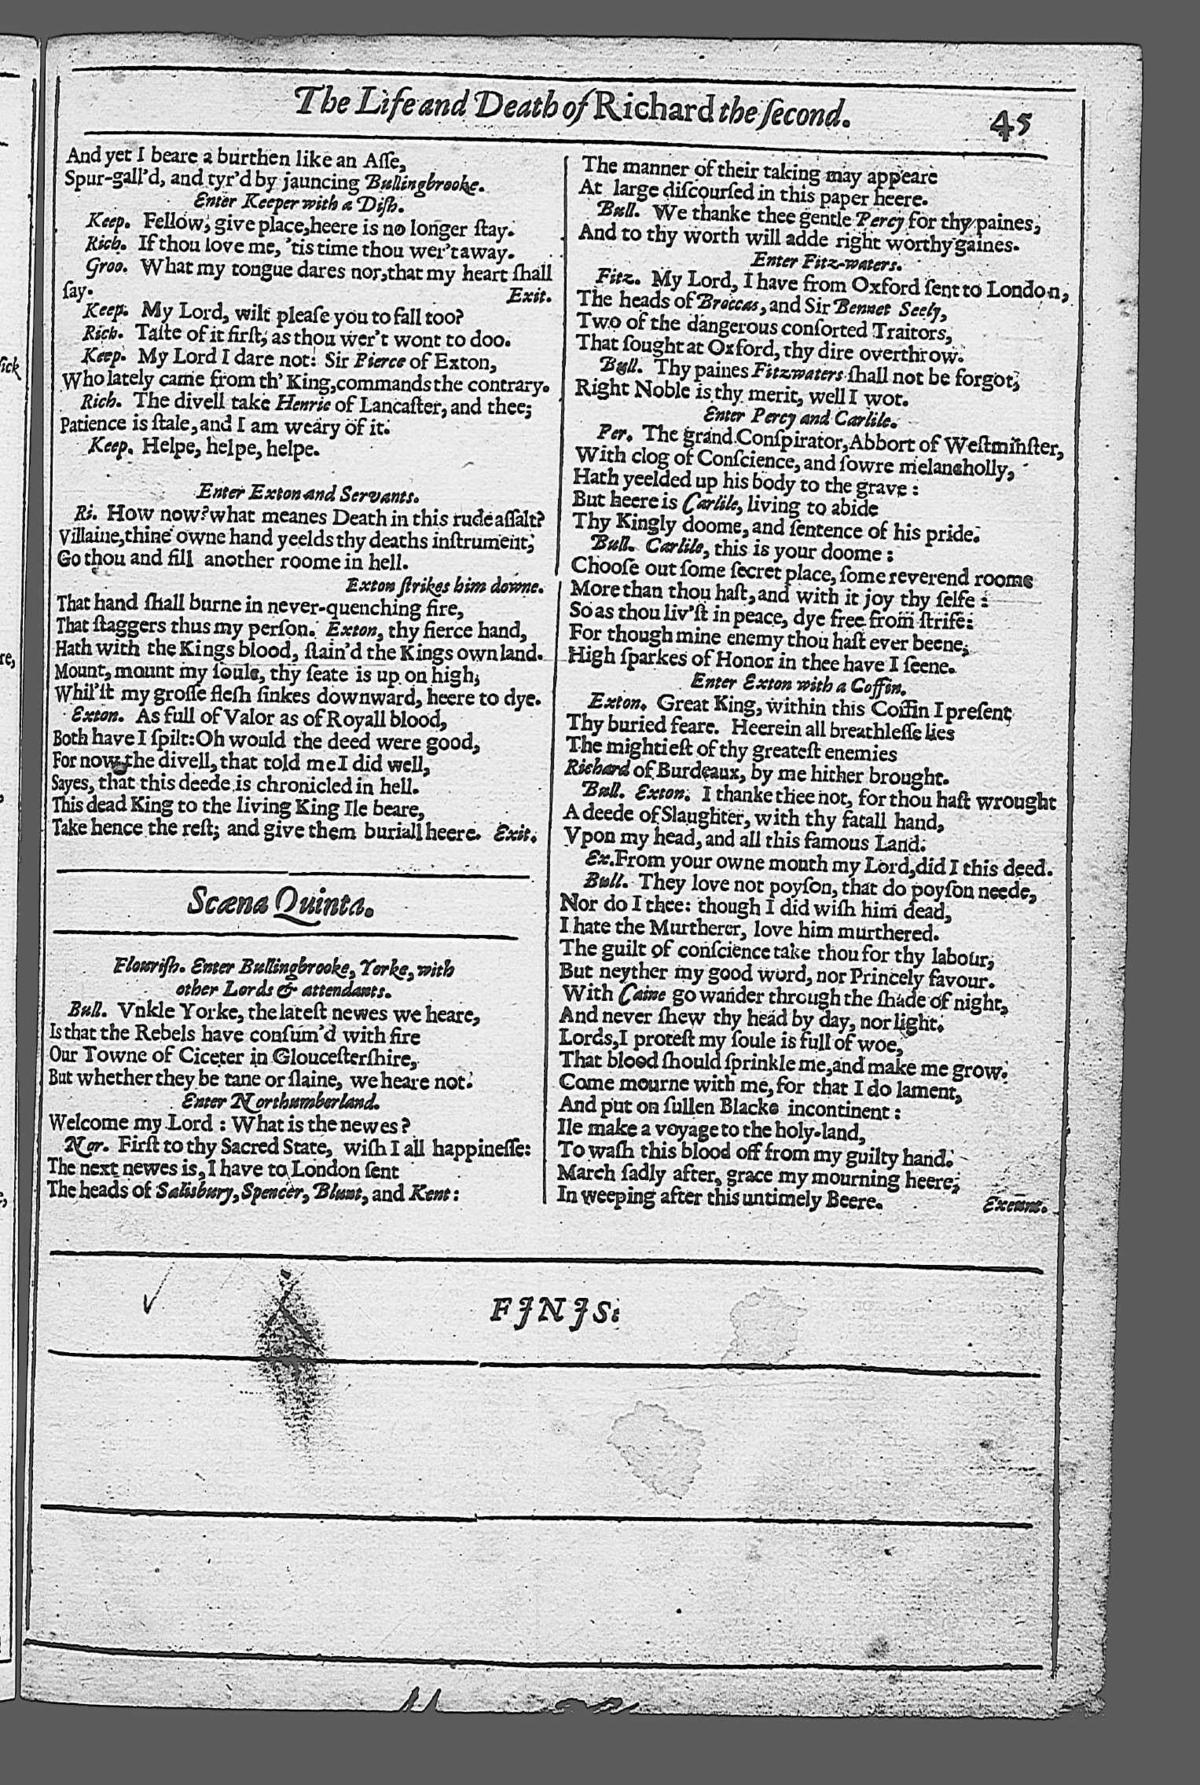 The Life and Death of Richard the ſecond.
45
And yet I beare a burthen like an Aſſe,
Spur-gall'd, and tyr'd by jauncing Bullingbrooke.
Enter Keeper with a Diſh.
Keep. Fellow, give place, heere is no longer ſtay.
Rich. If thou love me, 'tis time thou wer't away.
Groo. What my tongue dares not, that my heart ſhall
ſay. Exit.
Keep. My Lord, wilt pleaſe you to fall too?
Rich. Taſte of it firſt, as thou wer't wont to doo.
Keep. My Lord I dare not: Sir Pierce of Exton,
Who lately came from th' King, commands the contrary.
Rich. The divell take Henrie of Lancaſter, and thee;
Patience is ſtale, and I am weary of it.
Keep. Helpe, helpe, helpe.
Enter Exton and Servants.
Ri. How now? what meanes Death in this rude aſſalt?
Villaine, thine owne hand yeelds thy deaths inſtrument;
Go thou and fill another roome in hell.
Exton ſtrikes him downe.
That hand ſhall burne in never-quenching fire,
That ſtaggers thus my perſon. Exton, thy fierce hand,
Hath with the Kings blood, ſtain'd the Kings own land.
Mount, mount my ſoule, thy ſeate is up on high;
Whil'ſt my groſſe fleſh ſinkes downward, heere to dye.
Exton. As full of Valor as of Royall blood,
Both have I ſpilt: Oh would the deed were good,
For now the divell, that told me I did well,
Sayes, that this deede is chronicled in hell.
This dead King to the living King Ile beare,
Take hence the reſt; and give them buriall heere. Exit.
Scæna Quinta.
Flouriſh. Enter Bullingbrooke, Yorke, with
other Lords & attendants.
Bull. Vnkle Yorke, the lateſt newes we heare,
Is that the Rebels have conſum'd with fire
Our Towne of Ciceter in Glouceſterſhire,
But whether they be tane or ſlaine, we heare not.
Enter Northumberland.
Welcome my Lord : What is the newes?
Nor. Firſt to thy Sacred State, wiſh I all happineſſe:
The next newes is, I have to London ſent
The heads of Salisbury, Spencer, Blunt, and Kent:
The manner of their taking may appeare
At large diſcourſed in this paper heere.
Bull. We thanke thee gentle Percy for thy paines,
And to thy worth will adde right worthy gaines.
Enter Fitz-waters.
Fitz. My Lord, I have from Oxford ſent to London,
The heads of Broccas, and Sir Bennet Seely,
Two of the dangerous conſorted Traitors,
That ſought at Oxford, thy dire overthrow.
Bull. Thy paines Fitzwaters ſhall not be forgot,
Right Noble is thy merit, well I wot.
Enter Percy and Carlile.
Per. The grand Conſpirator, Abbot of Weſtminſter,
With clog of Conſcience, and ſowre melancholly,
Hath yeelded up his body to the grave :
But heere is Carlile, living to abide
Thy Kingly doome, and ſentence of his pride.
Bull. Carlile, this is your doome :
Chooſe out ſome ſecret place, ſome reverend roome
More than thou haſt, and with it joy thy ſelfe :
So as thou liv'ſt in peace, dye free from ſtrife:
For though mine enemy thou haſt ever beene,
High ſparkes of Honor in thee have I ſeene.
Enter Exton with a Coffin.
Exton. Great King, within this Coffin I preſent
Thy buried feare. Heerein all breathleſſe lies
The mightieſt of thy greateſt enemies
Richard of Burdeaux, by me hither brought.
Bull. Exton. I thanke thee not, for thou haſt wrought
A deede of Slaughter, with thy fatall hand,
Vpon my head, and all this famous Land.
Ex. From your owne mouth my Lord, did I this deed.
Bull. They love not poyſon, that do poyſon neede,
Nor do I thee: though I did wiſh him dead,
I hate the Murtherer, love him murthered.
The guilt of conſcience take thou for thy labour,
But neyther my good word, nor Princely favour.
With Caine go wander through the ſhade of night,
And never ſhew thy head by day, nor light.
Lords, I proteſt my ſoule is full of woe,
That blood ſhould ſprinkle me, and make me grow.
Come mourne with me, for that I do lament,
And put on ſullen Blacke incontinent :
Ile make a voyage to the holy-land,
To waſh this blood off from my guilty hand.
March ſadly after, grace my mourning heere,
In weeping after this untimely Beere. Exeunt.
FINIS.